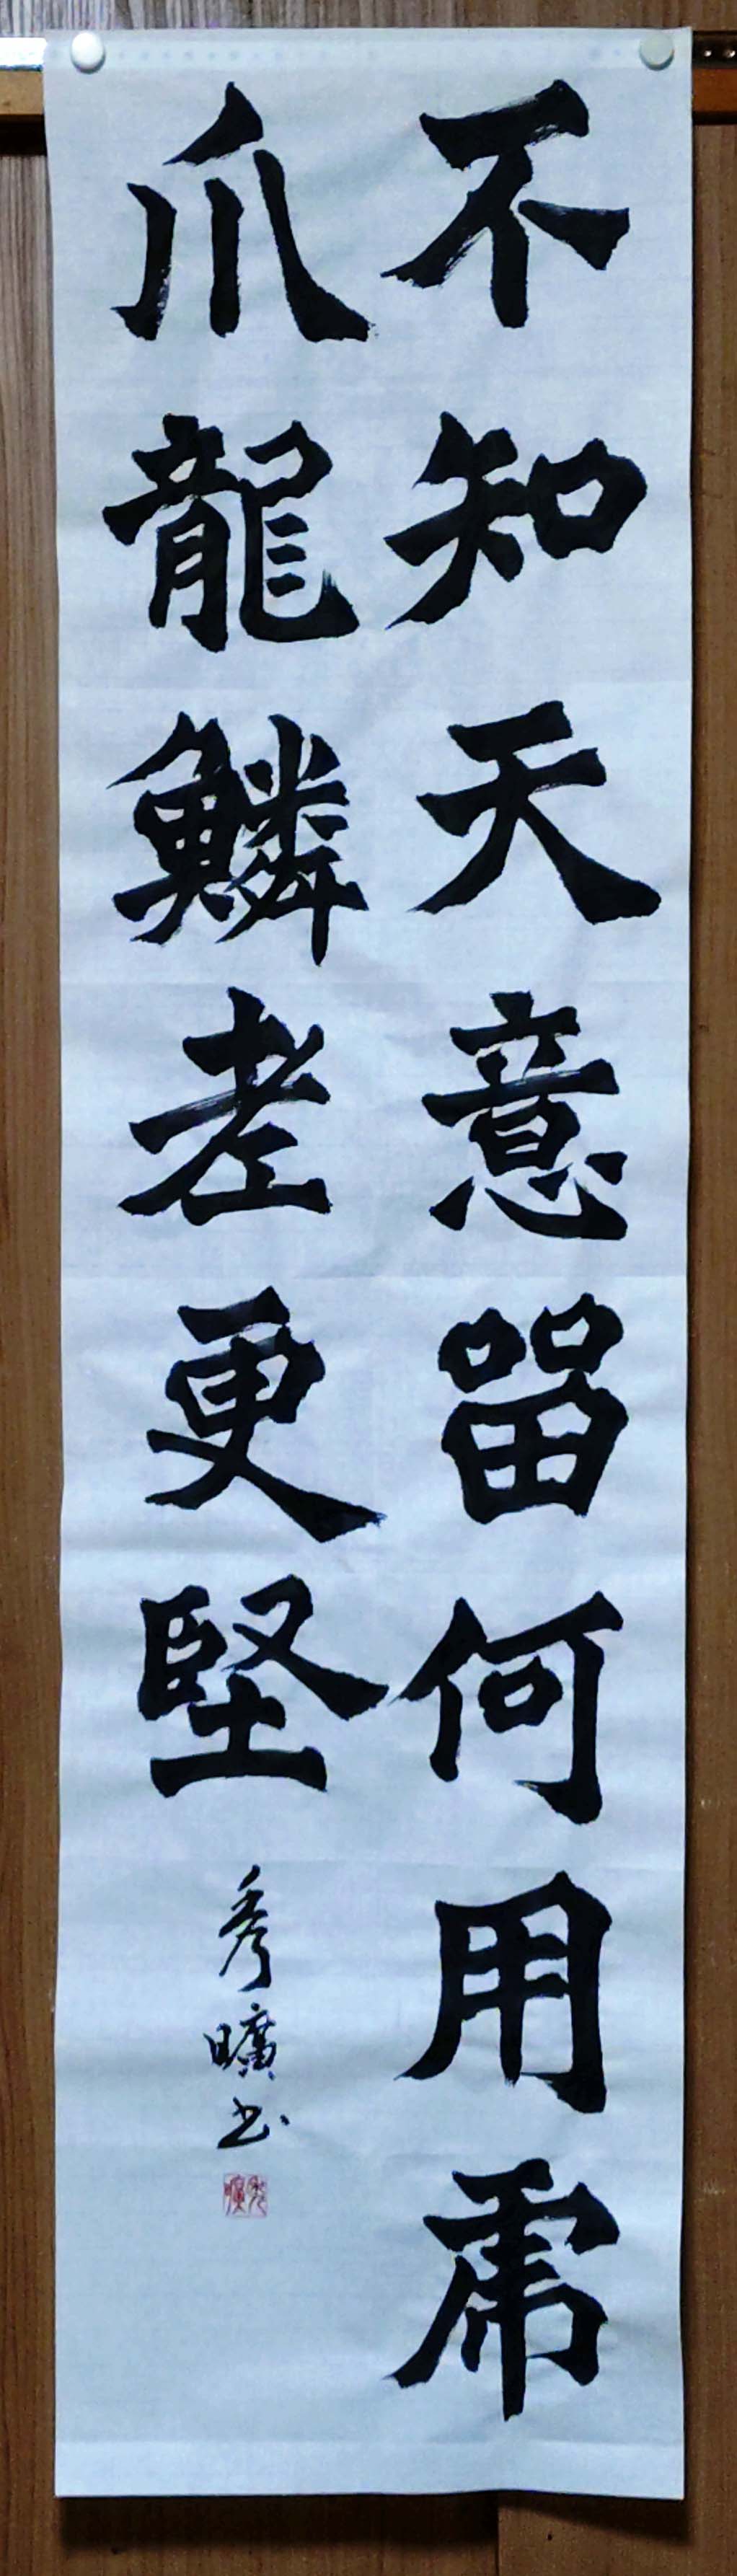 不知天意留何用虎
爪龍鱗老更堅
秀曠書
秀曠